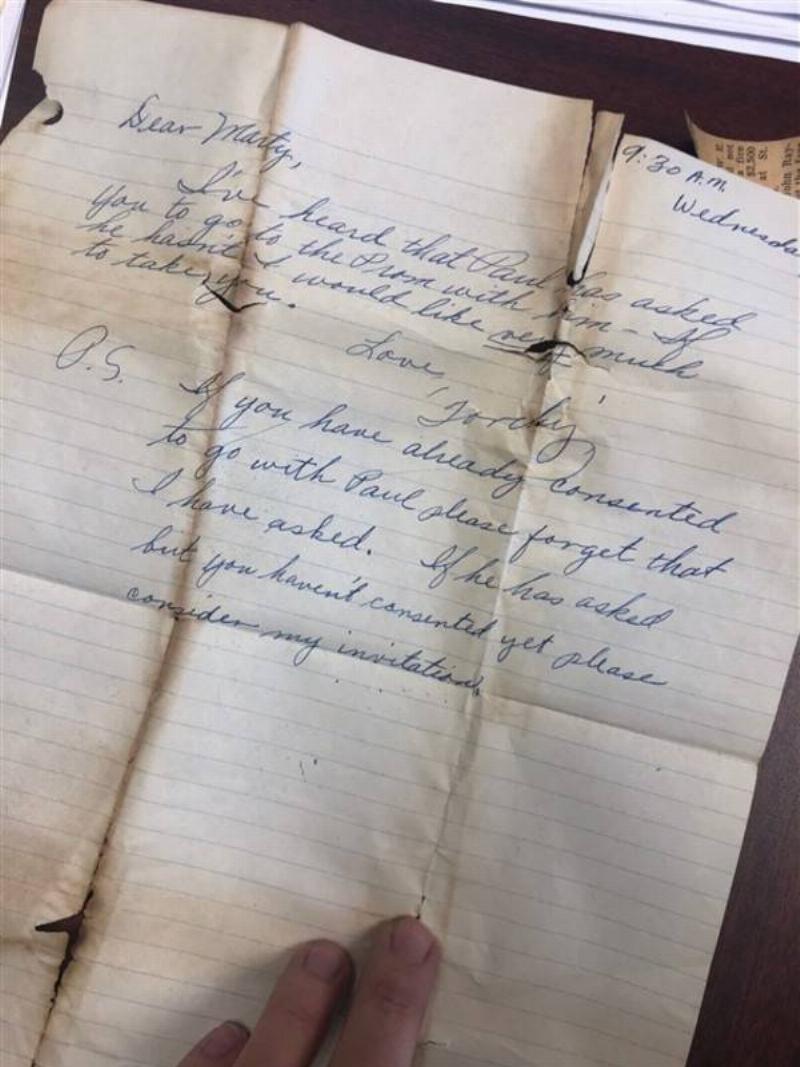 9:30 A.M.
Wednesda
Dear Marty,
I've heard that Paul has asked
you to go to the Prom with him - If
he hasn't I would like very much
to take you.
Love,
"Torchy"
P.S. If you have already consented
to go with Paul please forget that
I have asked. If he has asked
but you haven't consented yet please
consider my invitation.
$2,500
at St.